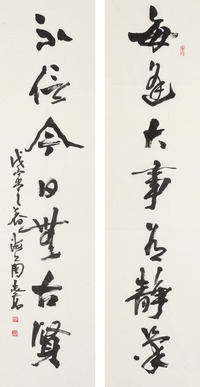 每逢大事有静气
不信今日无古贤
戊寅之春